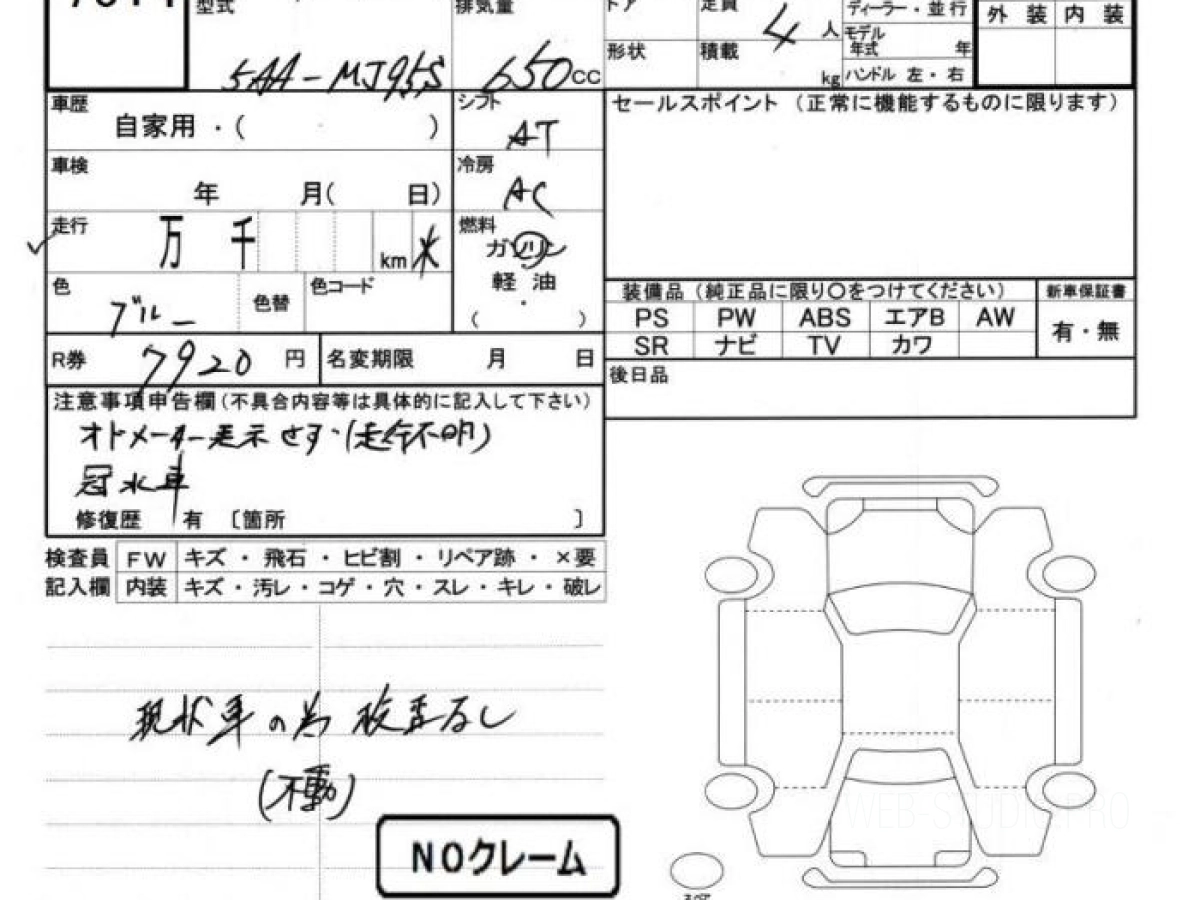 型式
5AA-MJ95S
排気量
650cc
ドア
定員
4人
ディーラー・並行
モデル年式 年
外装 内装
形状
積載
kg
ハンドル 左・右
車歴
自家用・( )
シフト
AT
セールスポイント (正常に機能するものに限ります)
車検
年 月( 日)
冷房
AC
走行
万 千 km
燃料
ガソリン
軽油
・
( )
色
ブルー
色替
色コード
装備品 (純正品に限り〇をつけてください)
新車保証書
PS PW ABS エアB AW
有・無
SR ナビ TV カワ
R券
7920 円
名変期限 月 日
後日品
注意事項申告欄(不具合内容等は具体的に記入して下さい)
オドメーター表示せず・(走行不明)
冠水車
修復歴 有 〔箇所 〕
検査員 FW キズ・飛石・ヒビ割・リペア跡・×要
記入欄 内装 キズ・汚レ・コゲ・穴・スレ・キレ・破レ
現状車の為 検査なし
(不動)
NOクレーム
WEB-STUDIO.PRO